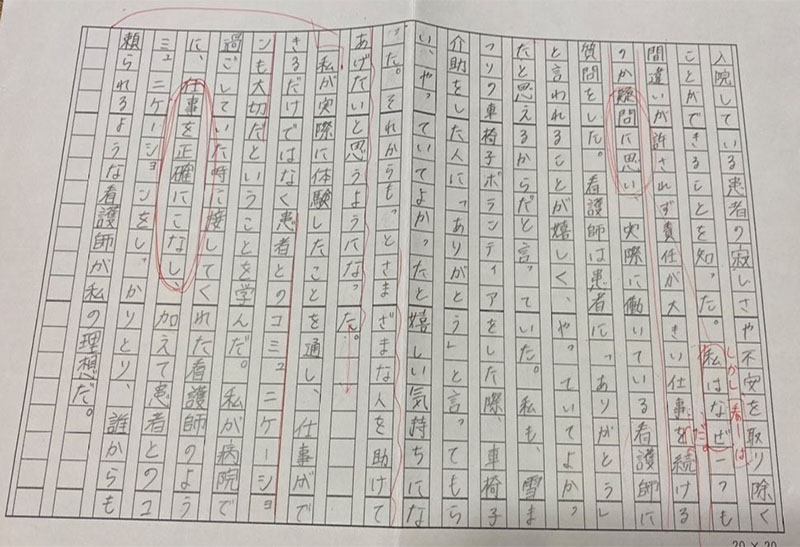 入院している患者の寂しさや不安を取り除く
ことができることを知った。私はなぜ一つも
しかし看ーは
だよ
間違いが許されず責任が大きい仕事を続ける
のか疑問に思い、実際に働いている看護師に
質問をした。看護師は患者に「ありがとう」
と言われることが嬉しく、やっていてよかっ
たと思えるからだと言っていた。私も、雪ま
つりの車椅子ボランティアをした際、車椅子
介助をした人に「ありがとう」と言ってもら
い、やっていてよかったと嬉しい気持ちにな
った。それからもっとさまざまな人を助けて
あげたいと思うようになった。
私が実際に体験したことを通し、仕事がで
きるだけではなく患者とのコミュニケーショ
ンも大切だということを学んだ。私が病院で
過ごしていた時に接してくれた看護師のよう
に、仕事を正確にこなし、加えて患者とのコ
ミュニケーションをしっかりとり、誰からも
頼られるような看護師が私の理想だ。
20×20